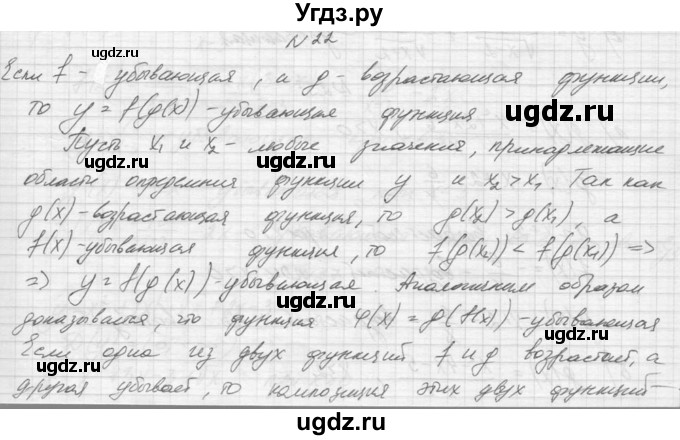 Угдз.ру
N 22
Если f - убывающая, а g - возрастающая функции,
то y = f(g(x)) - убывающая функция
Пусть x₁ и x₂ - любые значения, принадлежащие
области определения функции y и x₂ > x₁. Так как
g(x) - возрастающая функция, то g(x₂) > g(x₁), а
f(x) - убывающая функция, то f(g(x₂)) < f(g(x₁)) =>
=> y = f(g(x)) - убывающая. Аналогичным образом
доказывается, что функция φ(x) = g(f(x)) - убывающая
Если одна из двух функций f и g возрастает, а
другая убывает, то композиция этих двух функций -
ugdz.ru
ugdz.ru
ugdz.ru
ugdz.ru
ugdz.ru
ugdz.ru
ugdz.ru
ugdz.ru
ugdz.ru
ugdz.ru
ugdz.ru